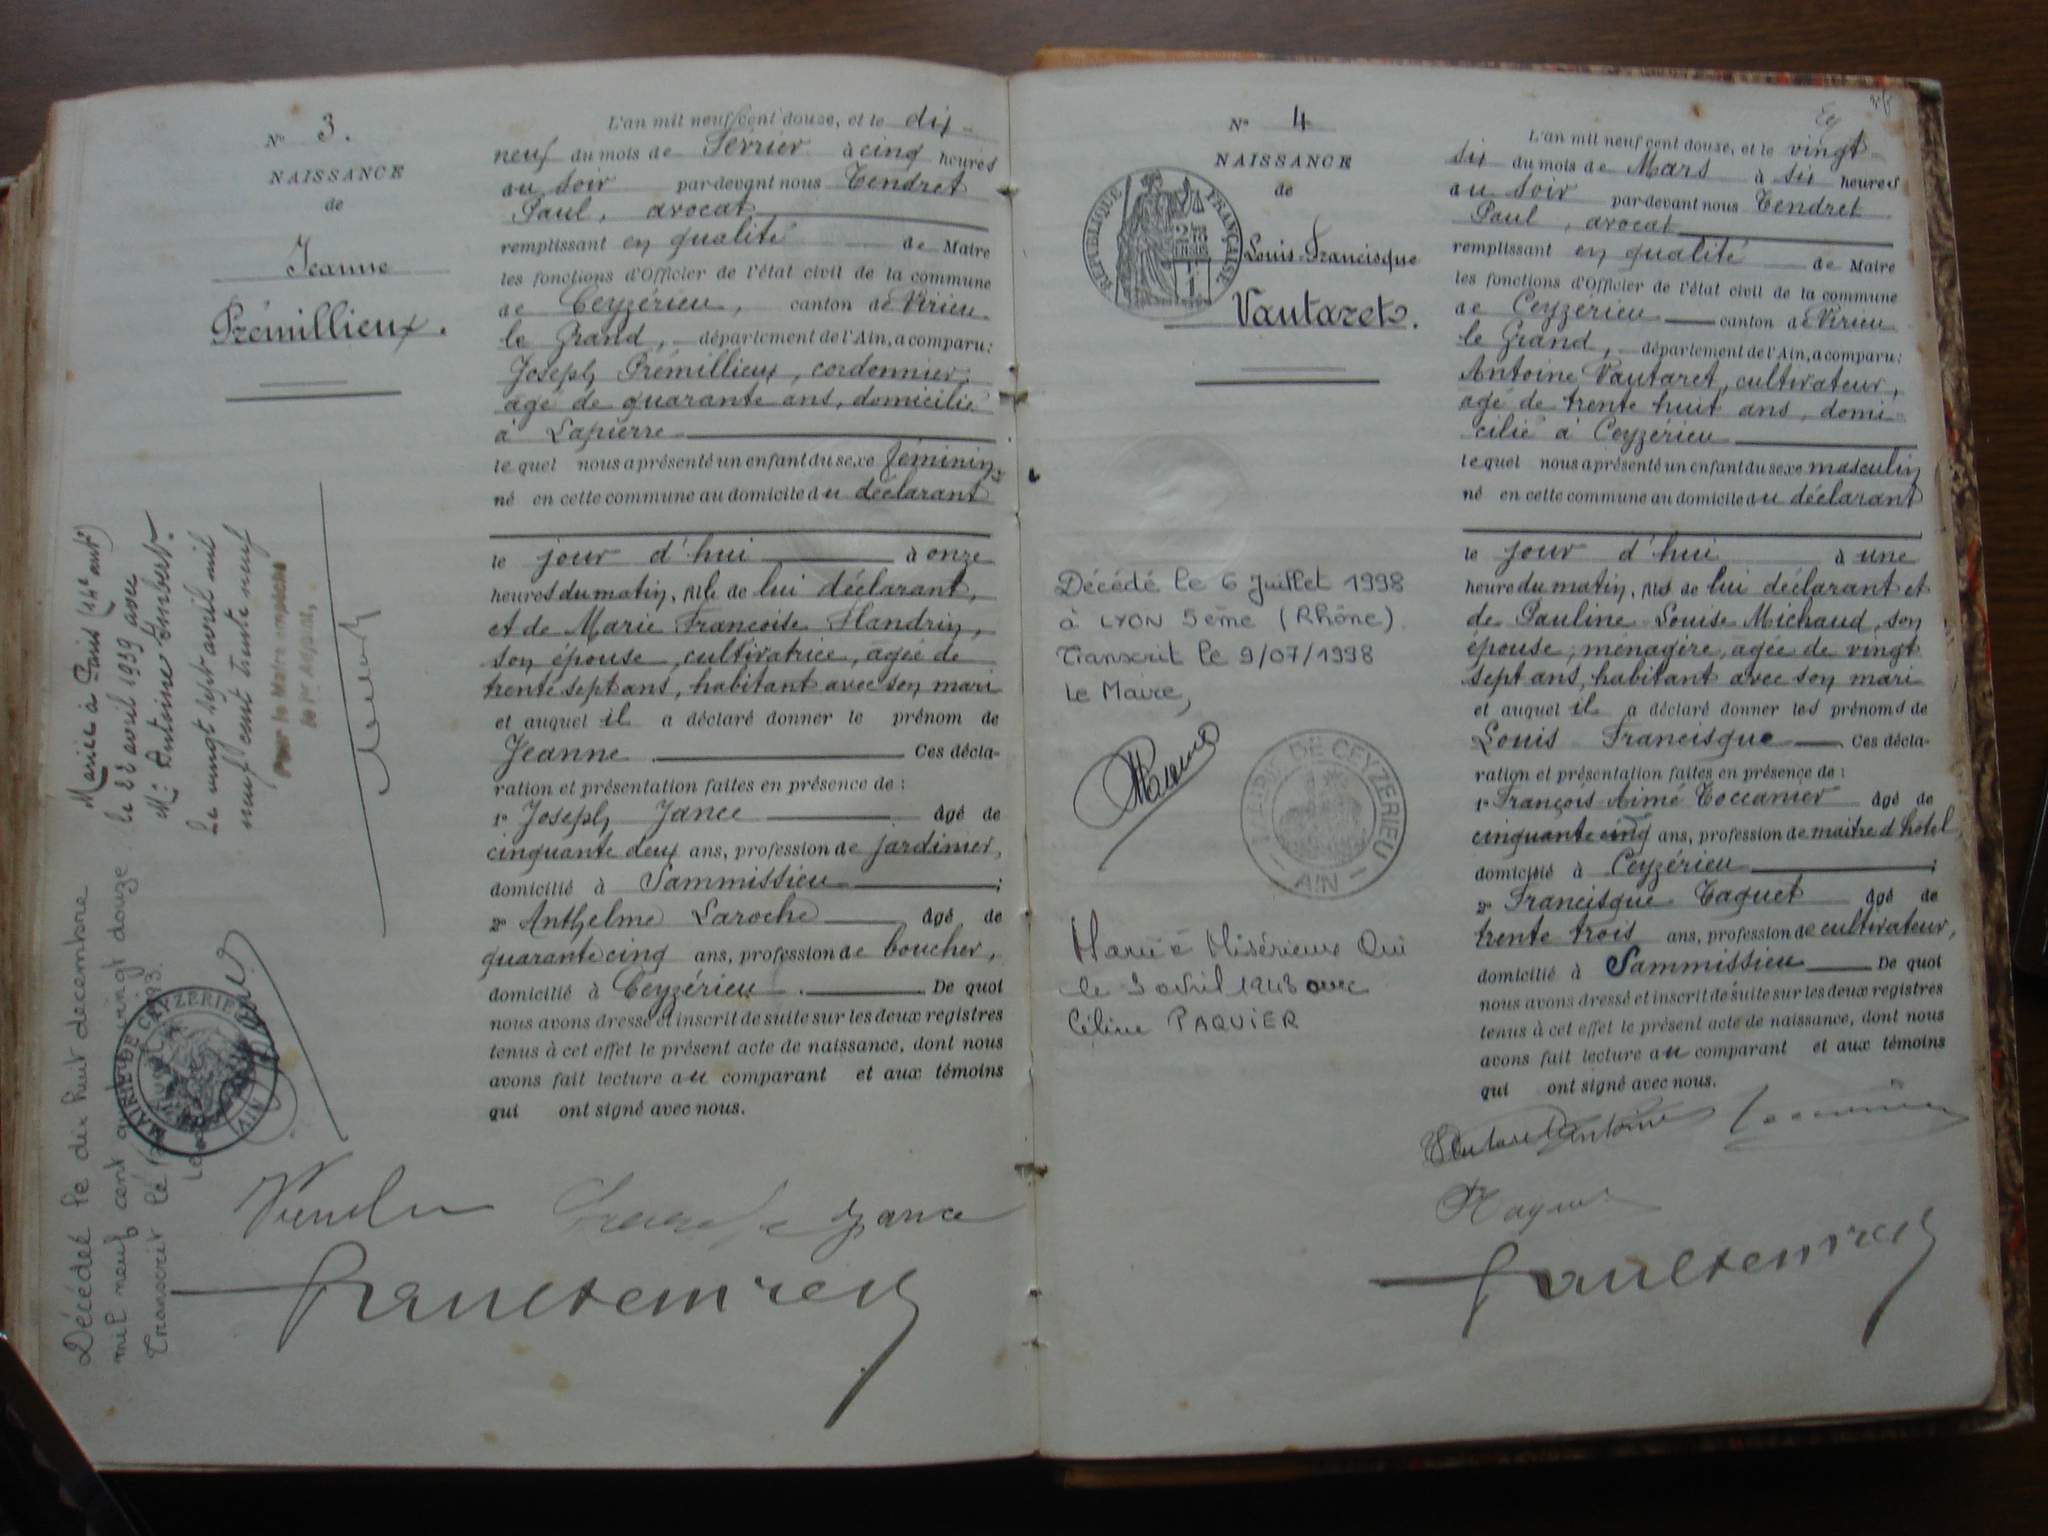 N° 3.
NAISSANCE
de
Jeanne
Prémillieux.
L'an mil neuf cent douze, et le dix-
neuf du mois de Février à cinq heures
du soir par-devant nous Tendret
Paul, avocat
remplissant en qualité de Maire
les fonctions d'Officier de l'état civil de la commune
de Ceyzérieu, canton de Virieu
le Grand, département de l'Ain, a comparu:
Joseph Prémillieux, cordonnier,
âgé de quarante ans, domicilié
à Lapierre
lequel nous a présenté un enfant du sexe féminin,
né en cette commune au domicile du déclarant
le jour d'hui à onze
heures du matin, fille de lui déclarant,
et de Marie Françoise Flandrin,
son épouse, cultivatrice, agée de
trente sept ans, habitant avec son mari
et auquel il a déclaré donner le prénom de
Jeanne Ces décla-
ration et présentation faites en présence de :
1° Joseph Jance âgé de
cinquante deux ans, profession de jardinier,
domicilié à Sammissieu ;
2° Anthelme Laroche âgé de
quarante cinq ans, profession de boucher,
domicilié à Ceyzérieu. De quoi
nous avons dressé et inscrit de suite sur les deux registres
tenus à cet effet le présent acte de naissance, dont nous
avons fait lecture au comparant et aux témoins
qui ont signé avec nous.
Jance
Mariée à Paris (14e arrt)
le 22 avril 1939 avec
M: Antoine Imbert.
Le vingt sept avril mil
neuf cent trente neuf
Pour le Maire empêché
le 1er Adjoint,
Décédée le dix huit décembre
mil neuf cent quatre vingt douze
Transcrit le 1993.
MAIRIE DE CEYZERIEU
AIN
N° 4
NAISSANCE
de
RÉPUBLIQUE FRANÇAISE
Louis-Francisque
Vautaret.
Décédé le 6 Juillet 1998
à LYON 5ème (Rhône).
Transcrit le 9/07/1998
Le Maire,
MAIRIE DE CEYZERIEU
- AIN -
Marié Misérieux
le 3 avril 1943 avec
Céline PAQUIER
L'an mil neuf cent douze, et le vingt-
six du mois de Mars à six heures
du soir par-devant nous Tendret
Paul, avocat
remplissant en qualité de Maire
les fonctions d'Officier de l'état civil de la commune
de Ceyzérieu canton de Virieu
le Grand, département de l'Ain, a comparu:
Antoine Vautaret, cultivateur,
agé de trente huit ans, domi-
cilié à Ceyzérieu
lequel nous a présenté un enfant du sexe masculin
né en cette commune au domicile du déclarant
le jour d'hui à une
heure du matin, fils de lui déclarant et
de Pauline-Louise Michaud, son
épouse, ménagère, agée de vingt
sept ans, habitant avec son mari
et auquel il a déclaré donner les prénoms de
Louis Francisque Ces décla-
ration et présentation faites en présence de :
1° François-Aimé Toccanier âgé de
cinquante cinq ans, profession de maître d'hôtel,
domicilié à Ceyzérieu ;
2° Francisque Taquet âgé de
trente trois ans, profession de cultivateur,
domicilié à Sammissieu De quoi
nous avons dressé et inscrit de suite sur les deux registres
tenus à cet effet le présent acte de naissance, dont nous
avons fait lecture au comparant et aux témoins
qui ont signé avec nous.
Vautaret Antoine